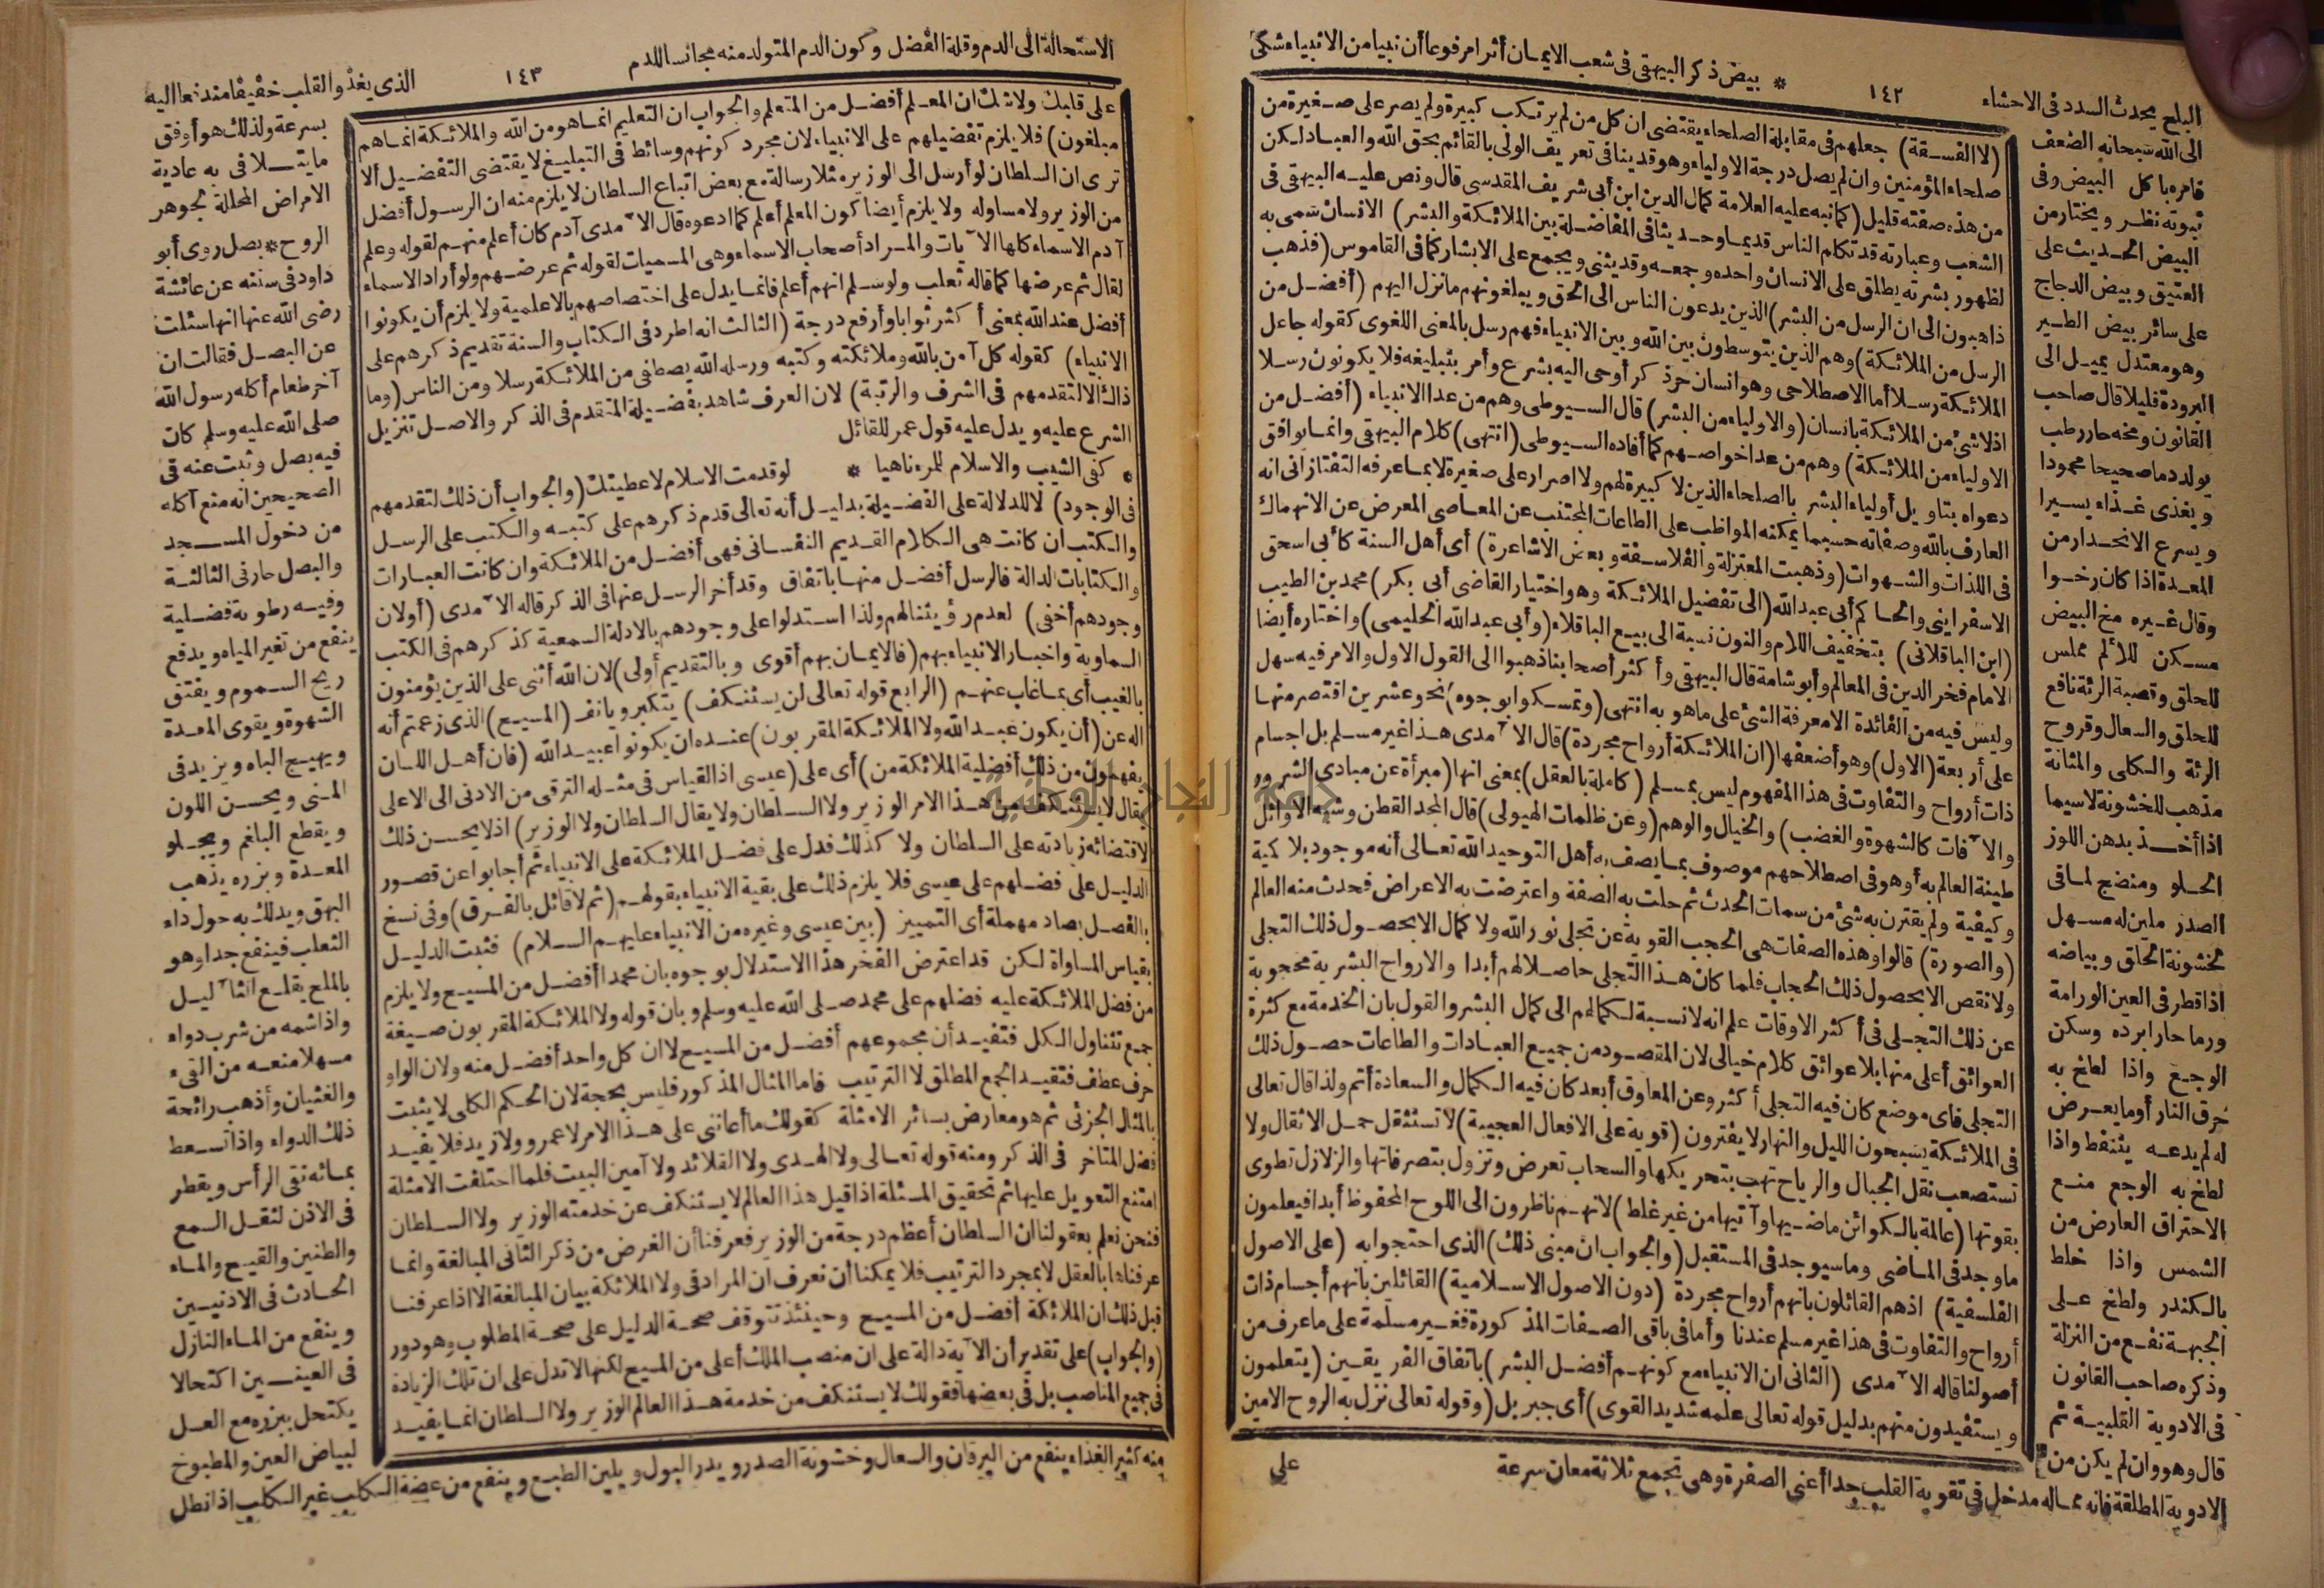 البلح يحدث السدد فى الاحشاء
١٤٢
* بيض ذكر البيهقى فى شعب الايمان أثرا مرفوعا أن نبيا من الانبياء شكى
الى الله سبحانه الضعف
فامره باكل البيض وفى
ثبوته نظر ويختار من
البيض الحديث على
العتيق وبيض الدجاج
على سائر بيض الطير
وهو معتدل يميل الى
البرودة قليلا قال صاحب
القانون ومخه حار رطب
يولد دما صحيحا محمودا
ويغذى غذاء يسيرا
ويسرع الانحدار من
المعدة اذا كان رخوا
وقال غيره مخ البيض
مسكن للألم مملس
للحلق وقصبة الرئة نافع
للحلق والسعال وقروح
الرئة والكلى والمثانة
مذهب للخشونة لاسيما
اذا أخذ بدهن اللوز
الحلو ومنضج لما فى
الصدر ملين له مسهل
لخشونة الحلق وبياضه
اذا قطر فى العين الوارمة
ورما حارا برده وسكن
الوجع واذا لطخ به
حرق النار أوما يعرض
له لم يدعه يتنفط واذا
لطخ به الوجع منع
الاحتراق العارض من
الشمس واذا خلط
بالكندر ولطخ على
الجبهة نفع من النزلة
وذكره صاحب القانون
فى الادوية القلبية ثم
قال وهو وان لم يكن من
الادوية المطلقة فانه مما له مدخل فى تقوية القلب جدا أعنى الصفرة وهى تجمع ثلاثة معان سرعة
(لا الفسقة) جعلهم فى مقابلة الصلحاء يقتضى ان كل من لم يرتكب كبيرة ولم يصر على صغيرة من
صلحاء المؤمنين وان لم يصل درجة الاولياء وهو قد ينافى تعريف الولى بالقائم بحق الله والعباد لكن
من هذه صفته قليل (كما نبه عليه العلامة كمال الدين ابن أبى شريف المقدسى قال ونص عليه البيهقى فى
الشعب وعبارته قد تكلم الناس قديما وحديثا فى المفاضلة بين الملائكة والبشر) الانسان سمى به
لظهور بشرته يطلق على الانسان واحده وجمعه وقد يثنى ويجمع على الابشار كما فى القاموس (فذهب
ذاهبون الى ان الرسل من البشر) الذين يدعون الناس الى الحق ويبلغونهم ما نزل اليهم (أفضل من
الرسل من الملائكة) وهم الذين يتوسطون بين الله وبين الانبياء فهم رسل بالمعنى اللغوى كقوله جاعل
الملائكة رسلا أما الاصطلاحى وهو انسان حر ذكر أوحى اليه بشرع وأمر بتبليغه فلا يكونون رسلا
اذ لا شئ من الملائكة بانسان (والاولياء من البشر) قال السيوطى وهم من عدا الانبياء (أفضل من
الاولياء من الملائكة) وهم من عدا خواصهم كما أفاده السيوطى (انتهى) كلام البيهقى وانما يوافق
دعواه بتأويل أولياء البشر بالصلحاء الذين لا كبيرة لهم ولا اصرار على صغيرة لا بما عرفه التفتازانى انه
العارف بالله وصفاته حسبما يمكنه المواظب على الطاعات المجتنب عن المعاصى المعرض عن الانهماك
فى اللذات والشهوات (وذهبت المعتزلة والفلاسفة وبعض الاشاعرة) أى أهل السنة كأبى اسحق
الاسفراينى والحاكم أبى عبد الله (الى تفضيل الملائكة وهو اختيار القاضى أبى بكر) محمد بن الطيب
(ابن الباقلانى) بتخفيف اللام والنون نسبة الى بيع الباقلاء (وأبى عبد الله الحليمى) واختاره أيضا
الامام فخر الدين فى المعالم وأبو شامة قال البيهقى وأكثر أصحابنا ذهبوا الى القول الاول والامر فيه سهل
وليس فيه من الفائدة الا معرفة الشئ على ما هو به انتهى (وتمسكوا بوجوه) نحو عشرين اقتصر منها
على أربعة (الاول) وهو أضعفها (ان الملائكة أرواح مجردة) قال الآمدى هذا غير مسلم بل اجسام
ذات أرواح والتفاوت فى هذا المفهوم ليس بمسلم (كاملة بالعقل) بمعنى انها (مبرأة عن مبادى الشرور
والآفات كالشهوة والغضب) والخيال والوهم (وعن ظلمات الهيولى) قال المجد القطن وشبه الاوائل
طينة العالم به أو هو فى اصطلاحهم موصوف بما يصف به أهل التوحيد الله تعالى أنه موجود بلا كمية
وكيفية ولم يقترن به شئ من سمات الحدث ثم حلت به الصفة واعترضت به الاعراض فحدث منه العالم
(والصورة) قالوا وهذه الصفات هى الحجب القوية عن تجلى نور الله ولا كمال الا بحصول ذلك التجلى
ولا نقص الا بحصول ذلك الحجاب فلما كان هذا التجلى حاصلا لهم أبدا والارواح البشرية محجوبة
عن ذلك التجلى فى أكثر الاوقات علم انه لا نسبة لكمالهم الى كمال البشر والقول بان الخدمة مع كثرة
العوائق أعلى منها بلا عوائق كلام خيالى لان المقصود من جميع العبادات والطاعات حصول ذلك
التجلى فاى موضع كان فيه التجلى أكثر وعن المعاوق أبعد كان فيه الكمال والسعادة أتم ولذا قال تعالى
فى الملائكة يسبحون الليل والنهار لا يفترون (قوية على الافعال العجيبة) لا تستثقل حمل الاثقال ولا
تستصعب نقل الجبال والرياح تهب بتحريكها والسحاب تعرض وتزول بتصرفاتها والزلازل تطوى
بقوتها (عالمة بالكوائن ماضيها وآتيها من غير غلط) لانهم ناظرون الى اللوح المحفوظ أبدا فيعلمون
ما وجد فى الماضى وما سيوجد فى المستقبل (والجواب ان مبنى ذلك) الذى احتجوا به (على الاصول
الفلسفية) اذ هم القائلون بانهم أرواح مجردة (دون الاصول الاسلامية) القائلين بانهم أجسام ذات
أرواح والتفاوت فى هذا غير مسلم عندنا وأما فى باقى الصفات المذكورة فغير مسلمة على ما عرف من
أصولنا قاله الآمدى (الثانى ان الانبياء مع كونهم أفضل البشر) باتفاق الفريقين (يتعلمون
ويستفيدون منهم بدليل قوله تعالى علمه شديد القوى) أى جبريل (وقوله تعالى نزل به الروح الامين
على
الاستحالة الى الدم وقلة الفضل وكون الدم المتولد منه مجانسا للدم
١٤٣
الذى يغذو القلب خفيفا مندفعا اليه
على قلبك ولا شك ان المعلم أفضل من المتعلم والجواب ان التعليم انما هو من الله والملائكة انما هم
مبلغون) فلا يلزم تفضيلهم على الانبياء لان مجرد كونهم وسائط فى التبليغ لا يقتضى التفضيل ألا
ترى ان السلطان لو أرسل الى الوزير مثلا رسالة مع بعض اتباع السلطان لا يلزم منه ان الرسول أفضل
من الوزير ولا مساوله ولا يلزم أيضا كون المعلم أعلم كما ادعوه قال الآمدى آدم كان أعلم منهم لقوله وعلم
آدم الاسماء كلها الآيات والمراد أصحاب الاسماء وهى المسميات لقوله ثم عرضهم ولو أراد الاسماء
لقال ثم عرضها كما قاله ثعلب ولو سلم انهم أعلم فانما يدل على اختصاصهم بالاعلمية ولا يلزم أن يكونوا
أفضل عند الله بمعنى أكثر ثوابا وأرفع درجة (الثالث انه اطرد فى الكتاب والسنة تقديم ذكرهم على
الانبياء) كقوله كل آمن بالله وملائكته وكتبه ورسله الله يصطفى من الملائكة رسلا ومن الناس (وما
ذاك الا لتقدمهم فى الشرف والرتبة) لان العرف شاهد بفضيلة المتقدم فى الذكر والاصل تنزيل
الشرع عليه ويدل عليه قول عمر للقائل
* كفى الشيب والاسلام للمرء ناهيا * لو قدمت الاسلام لاعطيتك (والجواب أن ذلك لتقدمهم
فى الوجود) لا للدلالة على الفضيلة بدليل أنه تعالى قدم ذكرهم على كتبه والكتب على الرسل
والكتب ان كانت هى الكلام القديم النفسانى فهى أفضل من الملائكة وان كانت العبارات
والكتابات الدالة فالرسل أفضل منها باتفاق وقد أخر الرسل عنها فى الذكر قاله الآمدى (أولان
وجودهم أخفى) لعدم رؤيتنا لهم ولذا استدلوا على وجودهم بالادلة السمعية كذكرهم فى الكتب
السماوية واخبار الانبياء بهم (فالايمان بهم أقوى وبالتقديم أولى) لان الله أثنى على الذين يؤمنون
بالغيب أى بما غاب عنهم (الرابع قوله تعالى لن يستنكف) يتكبر ويانف (المسيح) الذى زعمتم أنه
اله عن (أن يكون عبد الله ولا الملائكة المقربون) عنده ان يكونوا عبيد الله (فان أهل اللسان
يفهمون من ذلك أفضلية الملائكة من) أى على (عيسى اذ القياس فى مثله الترقى من الادنى الى الاعلى
يقال لا يستنكف من هذا الامر الوزير ولا السلطان ولا يقال السلطان ولا الوزير) اذ لا يحسن ذلك
لاقتضائه زيادته على السلطان ولا كذلك فدل على فضل الملائكة على الانبياء ثم أجابوا عن قصور
الدليل على فضلهم على عيسى فلا يلزم ذلك على بقية الانبياء بقولهم (ثم لا قائل بالفرق) وفى نسخ
بالفصل بصاد مهملة أى التمييز (بين عيسى وغيره من الانبياء عليهم السلام) فثبت الدليل
بقياس المساواة لكن قد اعترض الفخر هذا الاستدلال بوجوه بان محمدا أفضل من المسيح ولا يلزم
من فضل الملائكة عليه فضلهم على محمد صلى الله عليه وسلم وبان قوله ولا الملائكة المقربون صيغة
جمع تتناول الكل فتفيد أن مجموعهم أفضل من المسيح لا ان كل واحد أفضل منه ولان الواو
حرف عطف فتفيد الجمع المطلق لا الترتيب فاما المثال المذكور فليس بحجة لان الحكم الكلى لا يثبت
بالمثال الجزئى ثم هو معارض بسائر الامثلة كقولك ما أعاننى على هذا الامر لا عمرو ولا زيد فلا يفيد
فضل المتاخر فى الذكر ومنه قوله تعالى ولا الهدى ولا القلائد ولا آمين البيت فلما اختلفت الامثلة
امتنع التعويل عليها ثم تحقيق المسئلة اذا قيل هذا العالم لا يستنكف عن خدمته الوزير ولا السلطان
فنحن نعلم بعقولنا ان السلطان أعظم درجة من الوزير فعرفنا أن الغرض من ذكر الثانى المبالغة وانما
عرفناها بالعقل لا بمجرد الترتيب فلا يمكننا أن نعرف ان المراد فى ولا الملائكة بيان المبالغة الا اذا عرفنا
قبل ذلك ان الملائكة أفضل من المسيح وحينئذ تتوقف صحة الدليل على صحة المطلوب وهو دور
(والجواب) على تقدير أن الآية دالة على ان منصب الملك أعلى من المسيح لكنها لا تدل على ان تلك الزيادة
فى جميع المناصب بل فى بعضها فقولك لا يستنكف من خدمة هذا العالم الوزير ولا السلطان انما يفيد
بسرعة ولذلك هو أوفق
ما يتلافى به عادية
الامراض المحللة لجوهر
الروح * بصل روى أبو
داود فى سننه عن عائشة
رضى الله عنها انها سئلت
عن البصل فقالت ان
آخر طعام أكله رسول الله
صلى الله عليه وسلم كان
فيه بصل وثبت عنه فى
الصحيحين انه منع آكله
من دخول المسجد
والبصل حار فى الثالثة
وفيه رطوبة فضلية
ينفع من تغير المياه ويدفع
ريح السموم ويفتق
الشهوة ويقوى المعدة
ويهيج الباه ويزيد فى
المنى ويحسن اللون
ويقطع البلغم ويجلو
المعدة وبزره يذهب
البهق ويدلك به حول داء
الثعلب فينفع جدا وهو
بالملح يقلع الثآليل
واذا شمه من شرب دواء
مسهلا منعه من القىء
والغثيان وأذهب رائحة
ذلك الدواء واذا تسعط
بمائه نقى الرأس ويقطر
فى الاذن لثقل السمع
والطنين والقيح والماء
الحادث فى الاذنين
وينفع من الماء النازل
فى العينين اكتحالا
يكتحل ببزره مع العسل
لبياض العين والمطبوخ
منه كثير الغذاء ينفع من اليرقان والسعال وخشونة الصدر ويدر البول ويلين الطبع وينفع من عضة الكلب غير الكلب اذا نطل
جامعة النجاح الوطنية